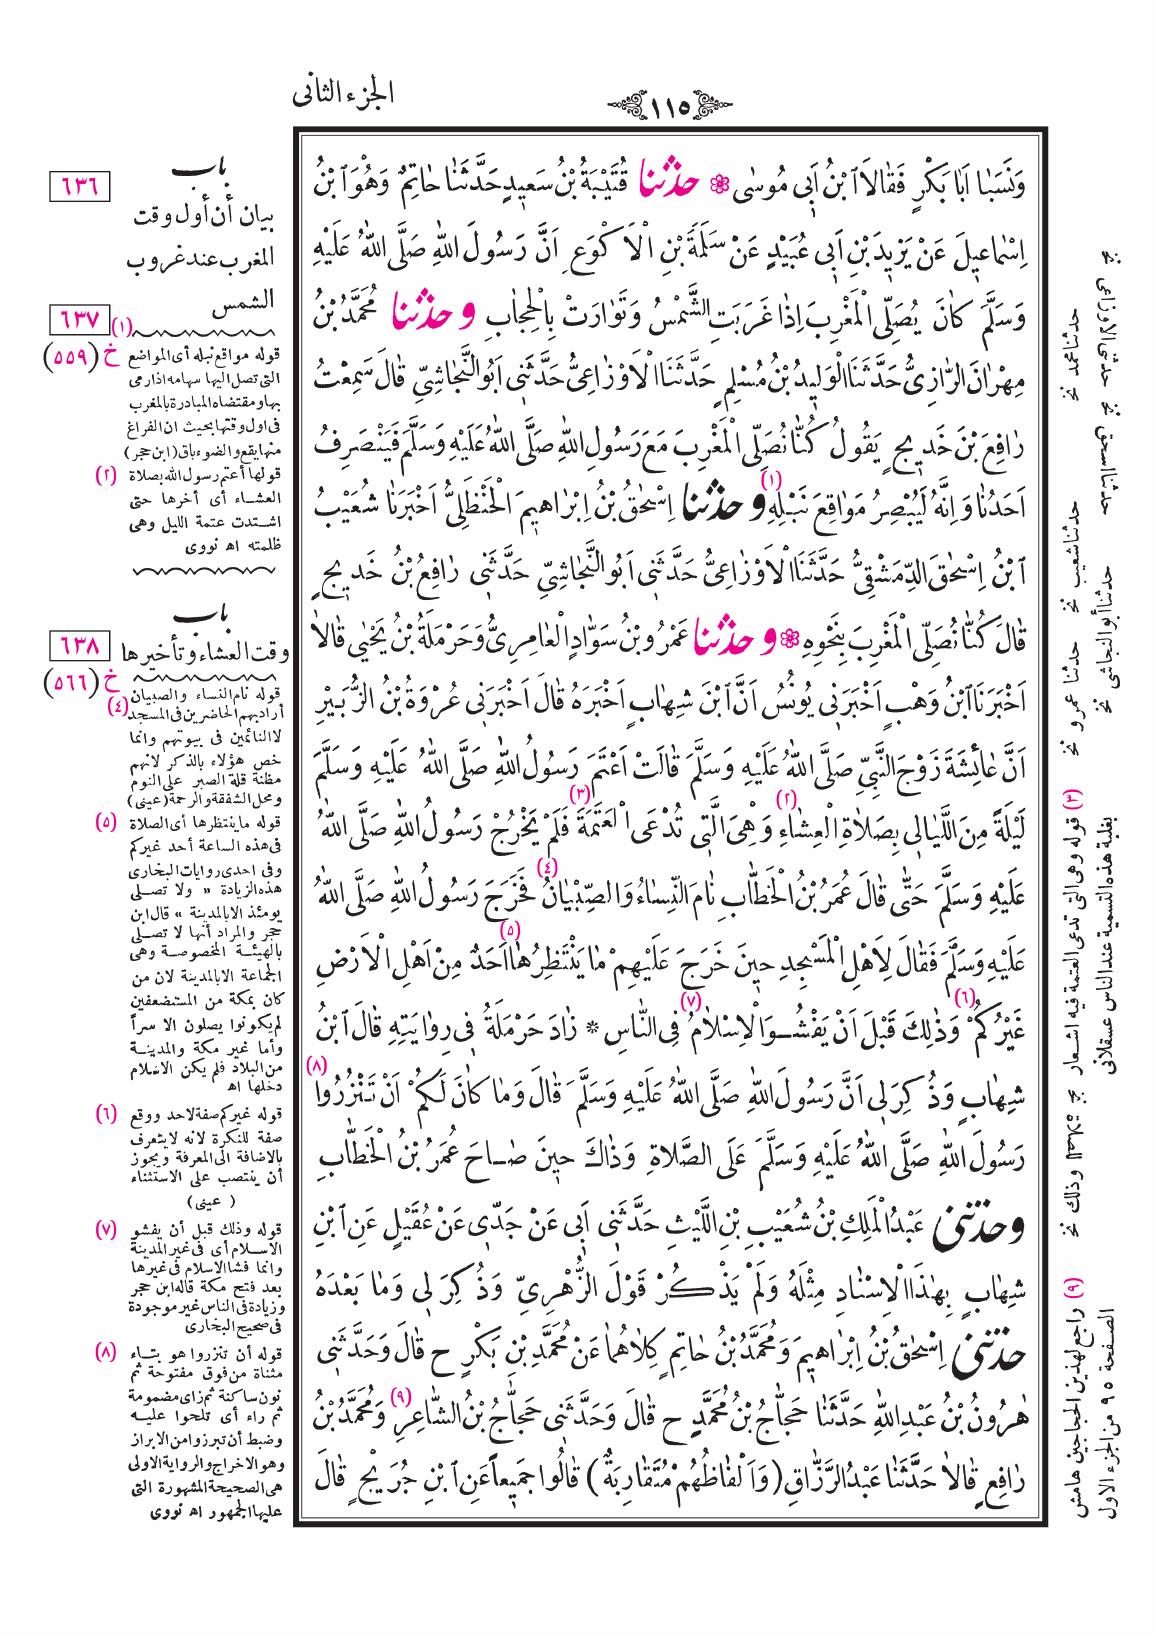 الجزء الثانى
١١٥
وَنَسَبَا اَبَا بَكْرٍ فَقَالَا ابْنُ اَبِى مُوسٰى ❀ حدثنا قُتَيْبَةُ بْنُ سَعِيدٍ حَدَّثَنَا حَاتِمٌ وَهُوَ ابْنُ
اِسْمَاعِيلَ عَنْ يَزِيدَ بْنِ اَبِى عُبَيْدٍ عَنْ سَلَمَةَ بْنِ الْاَكْوَعِ اَنَّ رَسُولَ اللّٰهِ صَلَّى اللّٰهُ عَلَيْهِ
وَسَلَّمَ كَانَ يُصَلِّى الْمَغْرِبَ اِذَا غَرَبَتِ الشَّمْسُ وَتَوَارَتْ بِالْحِجَابِ وحدثنا مُحَمَّدُ بْنُ
مِهْرَانَ الرَّازِىُّ حَدَّثَنَا الْوَلِيدُ بْنُ مُسْلِمٍ حَدَّثَنَا الْاَوْزَاعِىُّ حَدَّثَنِى اَبُو النَّجَاشِىِّ قَالَ سَمِعْتُ
رَافِعَ بْنَ خَدِيجٍ يَقُولُ كُنَّا نُصَلِّى الْمَغْرِبَ مَعَ رَسُولِ اللّٰهِ صَلَّى اللّٰهُ عَلَيْهِ وَسَلَّمَ فَيَنْصَرِفُ
اَحَدُنَا وَاِنَّهُ لَيُبْصِرُ مَوَاقِعَ نَبْلِهِ (١) وحدثنا اِسْحٰقُ بْنُ اِبْرَاهِيمَ الْحَنْظَلِىُّ اَخْبَرَنَا شُعَيْبُ
ابْنُ اِسْحٰقَ الدِّمَشْقِىُّ حَدَّثَنَا الْاَوْزَاعِىُّ حَدَّثَنِى اَبُو النَّجَاشِىِّ حَدَّثَنِى رَافِعُ بْنُ خَدِيجٍ
قَالَ كُنَّا نُصَلِّى الْمَغْرِبَ بِنَحْوِهِ ❀ وحدثنا عَمْرُو بْنُ سَوَّادٍ الْعَامِرِىُّ وَحَرْمَلَةُ بْنُ يَحْيٰى قَالَا
اَخْبَرَنَا ابْنُ وَهْبٍ اَخْبَرَنِى يُونُسُ اَنَّ ابْنَ شِهَابٍ اَخْبَرَهُ قَالَ اَخْبَرَنِى عُرْوَةُ بْنُ الزُّبَيْرِ
اَنَّ عَائِشَةَ زَوْجَ النَّبِىِّ صَلَّى اللّٰهُ عَلَيْهِ وَسَلَّمَ قَالَتْ اَعْتَمَ رَسُولُ اللّٰهِ صَلَّى اللّٰهُ عَلَيْهِ وَسَلَّمَ
لَيْلَةً مِنَ اللَّيَالِى بِصَلَاةِ الْعِشَاءِ (٢) وَهِىَ الَّتِى تُدْعَى الْعَتَمَةَ (٣) فَلَمْ يَخْرُجْ رَسُولُ اللّٰهِ صَلَّى اللّٰهُ
عَلَيْهِ وَسَلَّمَ حَتّٰى قَالَ عُمَرُ بْنُ الْخَطَّابِ نَامَ النِّسَاءُ وَالصِّبْيَانُ (٤) فَخَرَجَ رَسُولُ اللّٰهِ صَلَّى اللّٰهُ
عَلَيْهِ وَسَلَّمَ فَقَالَ لِاَهْلِ الْمَسْجِدِ حِينَ خَرَجَ عَلَيْهِمْ مَا يَنْتَظِرُهَا (٥) اَحَدٌ مِنْ اَهْلِ الْاَرْضِ
غَيْرُكُمْ (٦) وَذٰلِكَ قَبْلَ اَنْ يَفْشُوَ الْاِسْلَامُ (٧) فِى النَّاسِ * زَادَ حَرْمَلَةُ فِى رِوَايَتِهِ قَالَ ابْنُ
شِهَابٍ وَذُكِرَ لِى اَنَّ رَسُولَ اللّٰهِ صَلَّى اللّٰهُ عَلَيْهِ وَسَلَّمَ قَالَ وَمَا كَانَ لَكُمْ اَنْ تَنْزُرُوا (٨)
رَسُولَ اللّٰهِ صَلَّى اللّٰهُ عَلَيْهِ وَسَلَّمَ عَلَى الصَّلَاةِ وَذَاكَ حِينَ صَاحَ عُمَرُ بْنُ الْخَطَّابِ
وحدثنى عَبْدُ الْمَلِكِ بْنُ شُعَيْبِ بْنِ اللَّيْثِ حَدَّثَنِى اَبِى عَنْ جَدِّى عَنْ عُقَيْلٍ عَنِ ابْنِ
شِهَابٍ بِهٰذَا الْاِسْنَادِ مِثْلَهُ وَلَمْ يَذْكُرْ قَوْلَ الزُّهْرِىِّ وَذُكِرَ لِى وَمَا بَعْدَهُ
حدثنى اِسْحٰقُ بْنُ اِبْرَاهِيمَ وَمُحَمَّدُ بْنُ حَاتِمٍ كِلَاهُمَا عَنْ مُحَمَّدِ بْنِ بَكْرٍ ح قَالَ وَحَدَّثَنِى
هٰرُونُ بْنُ عَبْدِ اللّٰهِ حَدَّثَنَا حَجَّاجُ بْنُ مُحَمَّدٍ ح قَالَ وَحَدَّثَنِى حَجَّاجُ بْنُ الشَّاعِرِ (٩) وَمُحَمَّدُ بْنُ
رَافِعٍ قَالَا حَدَّثَنَا عَبْدُ الرَّزَّاقِ (وَاَلْفَاظُهُمْ مُتَقَارِبَةٌ) قَالُوا جَمِيعاً عَنِ ابْنِ جُرَيْجٍ قَالَ
باب
٦٣٦
بيان أن أول وقت
المغرب عند غروب
الشمس
٦٣٧
(١)
خ (٥٥٩)
قوله مواقع نبله أى المواضع
التى تصل اليها سهامه اذا رمى
بها ومقتضاه المبادرة بالمغرب
فى اول وقتها بحيث ان الفراغ
منها يقع والضوء باق (ابن حجر)
(٢) قولها أعتم رسول الله بصلاة
العشاء أى أخرها حتى
اشتدت عتمة الليل وهى
ظلمته اه نووى
باب
٦٣٨
وقت العشاء وتأخيرها
خ (٥٦٦)
(٤) قوله نام النساء والصبيان
أراد بهم الحاضرين فى المسجد
لا النائمين فى بيوتهم وانما
خص هؤلاء بالذكر لانهم
مظنة قلة الصبر على النوم
ومحل الشفقة والرحمة (عينى)
(٥) قوله ما ينتظرها أى الصلاة
فى هذه الساعة أحد غيركم
وفى احدى روايات البخارى
هذه الزيادة « ولا تصلى
يومئذ الا بالمدينة » قال ابن
حجر والمراد أنها لا تصلى
بالهيئة المخصوصة وهى
الجماعة الا بالمدينة لان من
كان بمكة من المستضعفين
لم يكونوا يصلون الا سراً
وأما غير مكة والمدينة
من البلاد فلم يكن الاسلام
دخلها اه
(٦) قوله غيركم صفة لاحد ووقع
صفة للنكرة لانه لا يتعرف
بالاضافة الى المعرفة ويجوز
أن ينتصب على الاستثناء
( عينى )
(٧) قوله وذلك قبل أن يفشو
الاسلام أى فى غير المدينة
وانما فشا الاسلام فى غيرها
بعد فتح مكة قاله ابن حجر
وزيادة فى الناس غير موجودة
فى صحيح البخارى
(٨) قوله أن تنزروا هو بتاء
مثناة من فوق مفتوحة ثم
نون ساكنة ثم زاى مضمومة
ثم راء أى تلحوا عليه
وضبط أن تبرزوا من الابراز
وهو الاخراج والرواية الاولى
هى الصحيحة المشهورة التى
عليها الجمهور اه نووى
حدثنا محمد نخ
حدثنا شعيب نخ
حدثنا أبو النجاشى نخ
حدثنا عمرو نخ
(٣) قوله وهى التى تدعى العتمة فيه اشعار
بغلبة هذه التسمية عند الناس عسقلانى
وذلك نخ
(٩) راجع لهذين الحجاجين هامش
الصفحة ٩٥ من الجزء الاول